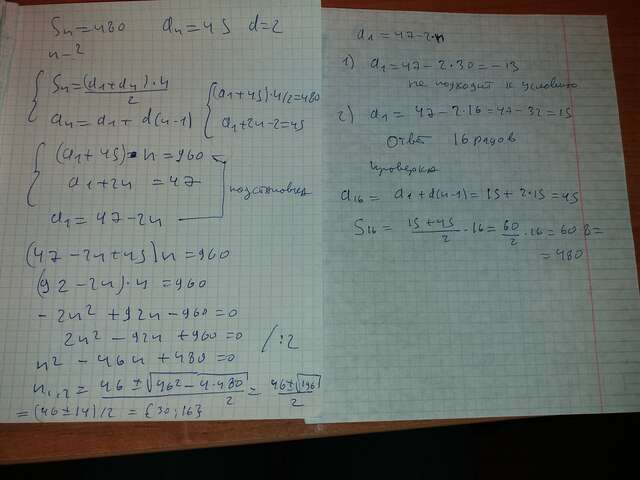 Sn=480 an=45 d=2
n-?
Sn=(a1+an)·n/2 (a1+45)·n/2=480
an=a1+d(n-1) a1+2n-2=45
(a1+45)·n=960
a1+2n=47
a1=47-2n подстановка
(47-2n+45)n=960
(92-2n)·n=960
-2n²+92n-960=0
2n²-92n+960=0 /:2
n²-46n+480=0
n1,2=(46±√(46²-4·480))/2=(46±√196)/2
=(46±14)/2={30;16}
a1=47-2·n
1) a1=47-2·30=-13
не подходит к условию
2) a1=47-2·16=47-32=15
Ответ 16 рядов
проверка
a16=a1+d(n-1)=15+2·15=45
S16=(15+45)/2·16=60/2·16=60·8=
=480